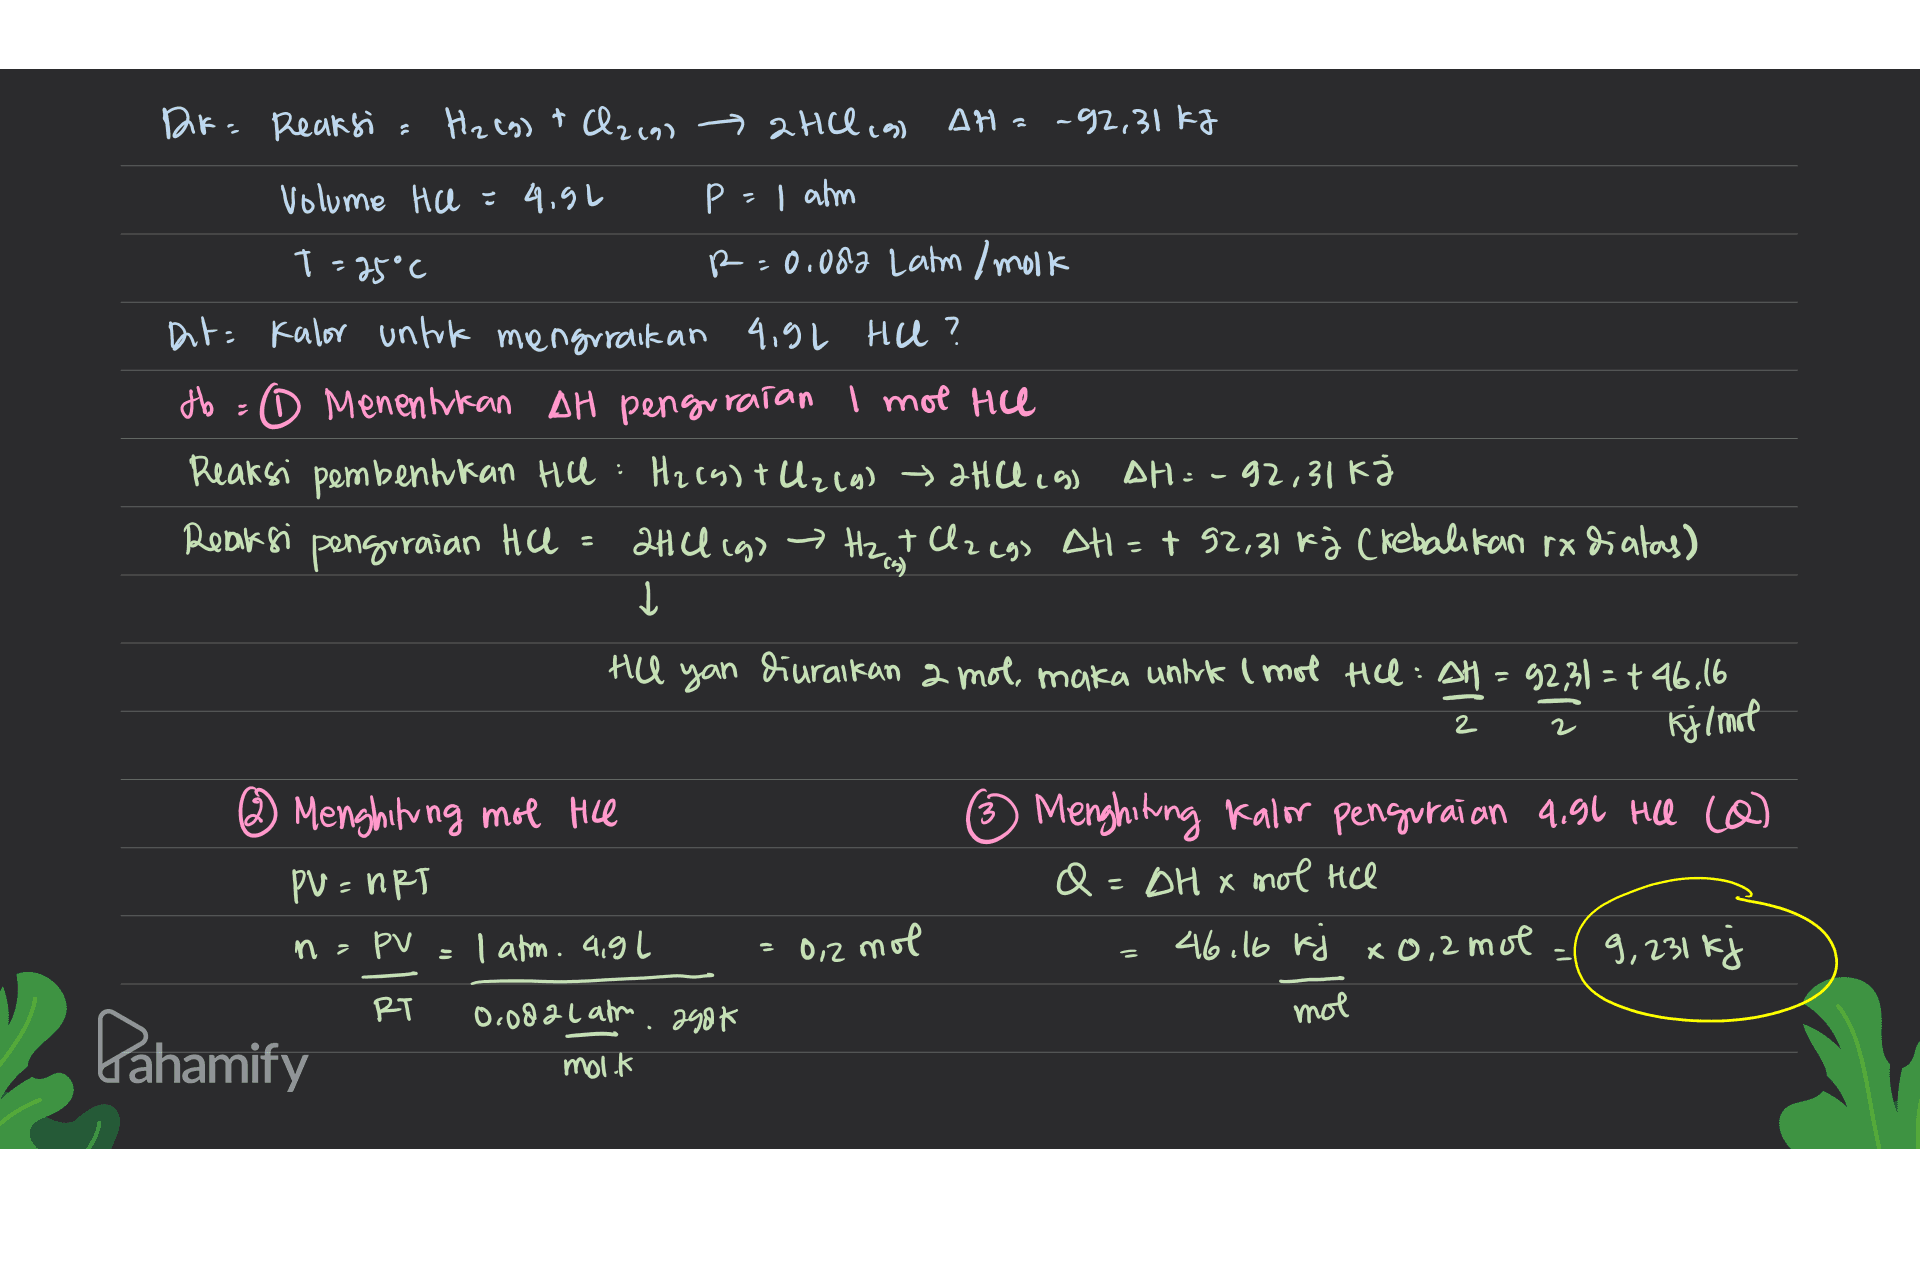 Dik = Reaksi = H₂(g) + Cl₂(g) → 2HCl(g) ΔH = -92,31 kJ
Volume HCl = 4,9L P = 1 atm
T = 25°C R = 0,082 Latm/molK
Dit = Kalor untuk menguraikan 4,9L HCl?
Jb = ① Menentukan ΔH penguraian 1 mol HCl
Reaksi pembentukan HCl : H₂(g) + Cl₂(g) → 2HCl(g) ΔH = -92,31 kJ
Reaksi penguraian HCl = 2HCl(g) → H₂(g) + Cl₂(g) ΔH = +92,31 kJ (kebalikan rx diatas)
↓
HCl yan diuraikan 2 mol, maka untuk 1 mol HCl : ΔH/2 = 92,31/2 = +46,16 kJ/mol
② Menghitung mol HCl
PV = nRT
n = PV/RT = 1 atm . 4,9L / 0,082 Latm/mol.K . 298K = 0,2 mol
③ Menghitung kalor penguraian 4,9L HCl (Q)
Q = ΔH x mol HCl
= 46,16 kJ/mol x 0,2 mol = 9,231 kJ
Pahamify